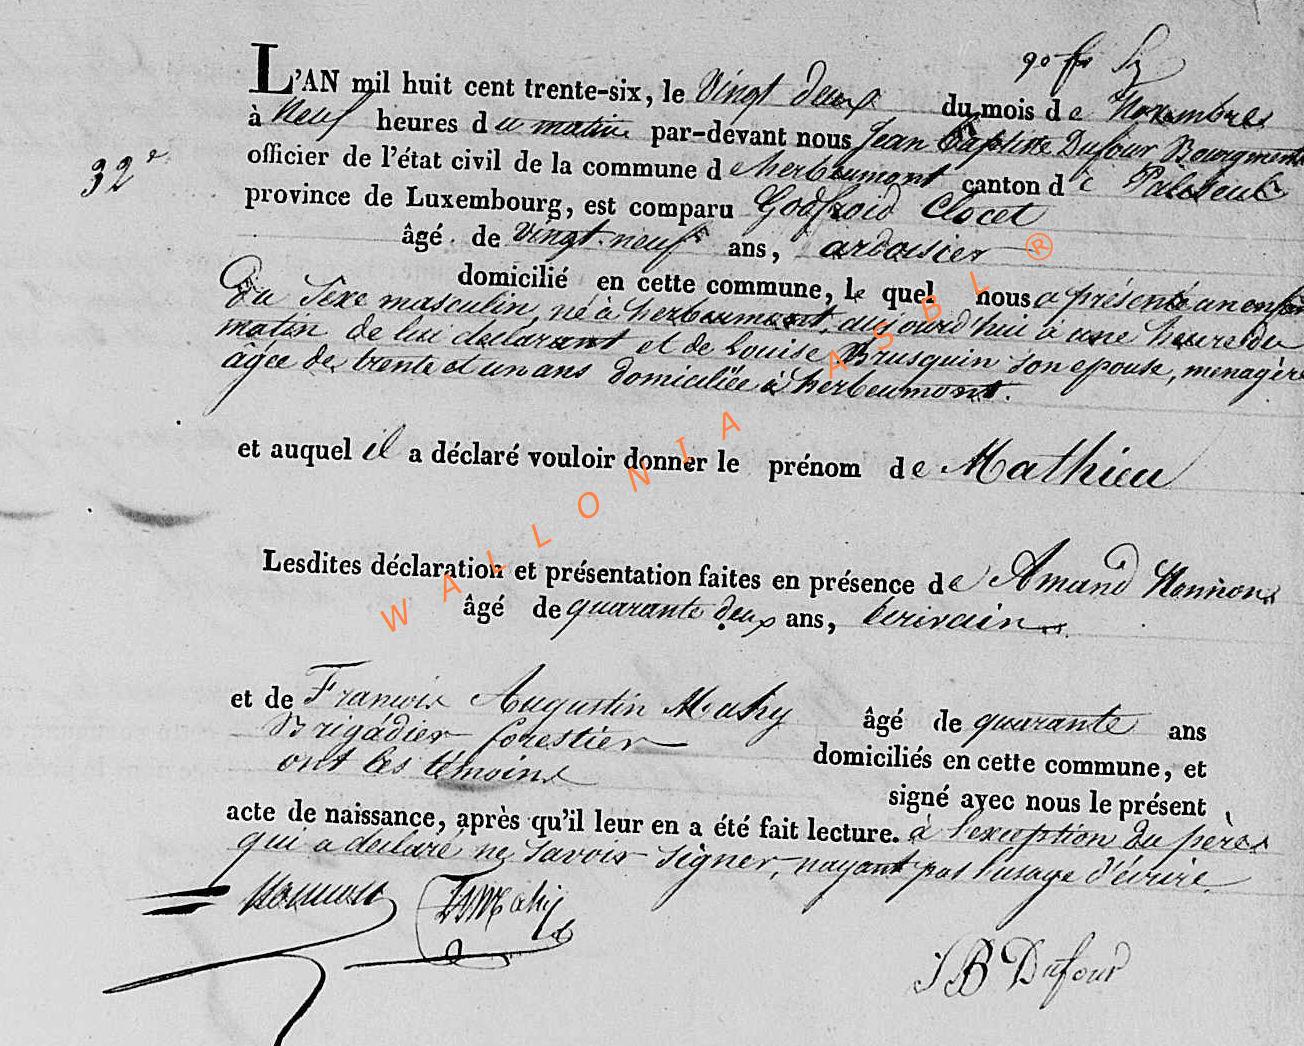 90 fr
L'AN mil huit cent trente-six, le Vingt deux du mois de Novembre
à Neuf heures du matin par-devant nous Jean Baptiste Dufour Bourgmestre
32e
officier de l'état civil de la commune d'herbeumont canton de Paliseul
province de Luxembourg, est comparu Godfroid Clocet
âgé de vingt-neuf ans, ardoisier
domicilié en cette commune, le quel nous a présenté un enfant
Du Sexe masculin, né à herbeumont, aujourd'hui à une heure du
matin de lui declarant et de Louise Brusquin son epouse, menagère
âgée de trente et un ans domiciliée à herbeumont.
et auquel il a déclaré vouloir donner le prénom de Mathieu
Lesdites déclaration et présentation faites en présence de Amand
âgé de quarante deux ans, Ecrivain
et de Francois Augustin Mahy âgé de quarante ans
Brigádier forestier domiciliés en cette commune, et
ont les témoins signé avec nous le présent
acte de naissance, après qu'il leur en a été fait lecture. à l'exception du père
qui a declaré ne savoir signer, nayant pas l'usage d'écrire.
Mahy
JB Dufour
WALLONIA ASBL ®